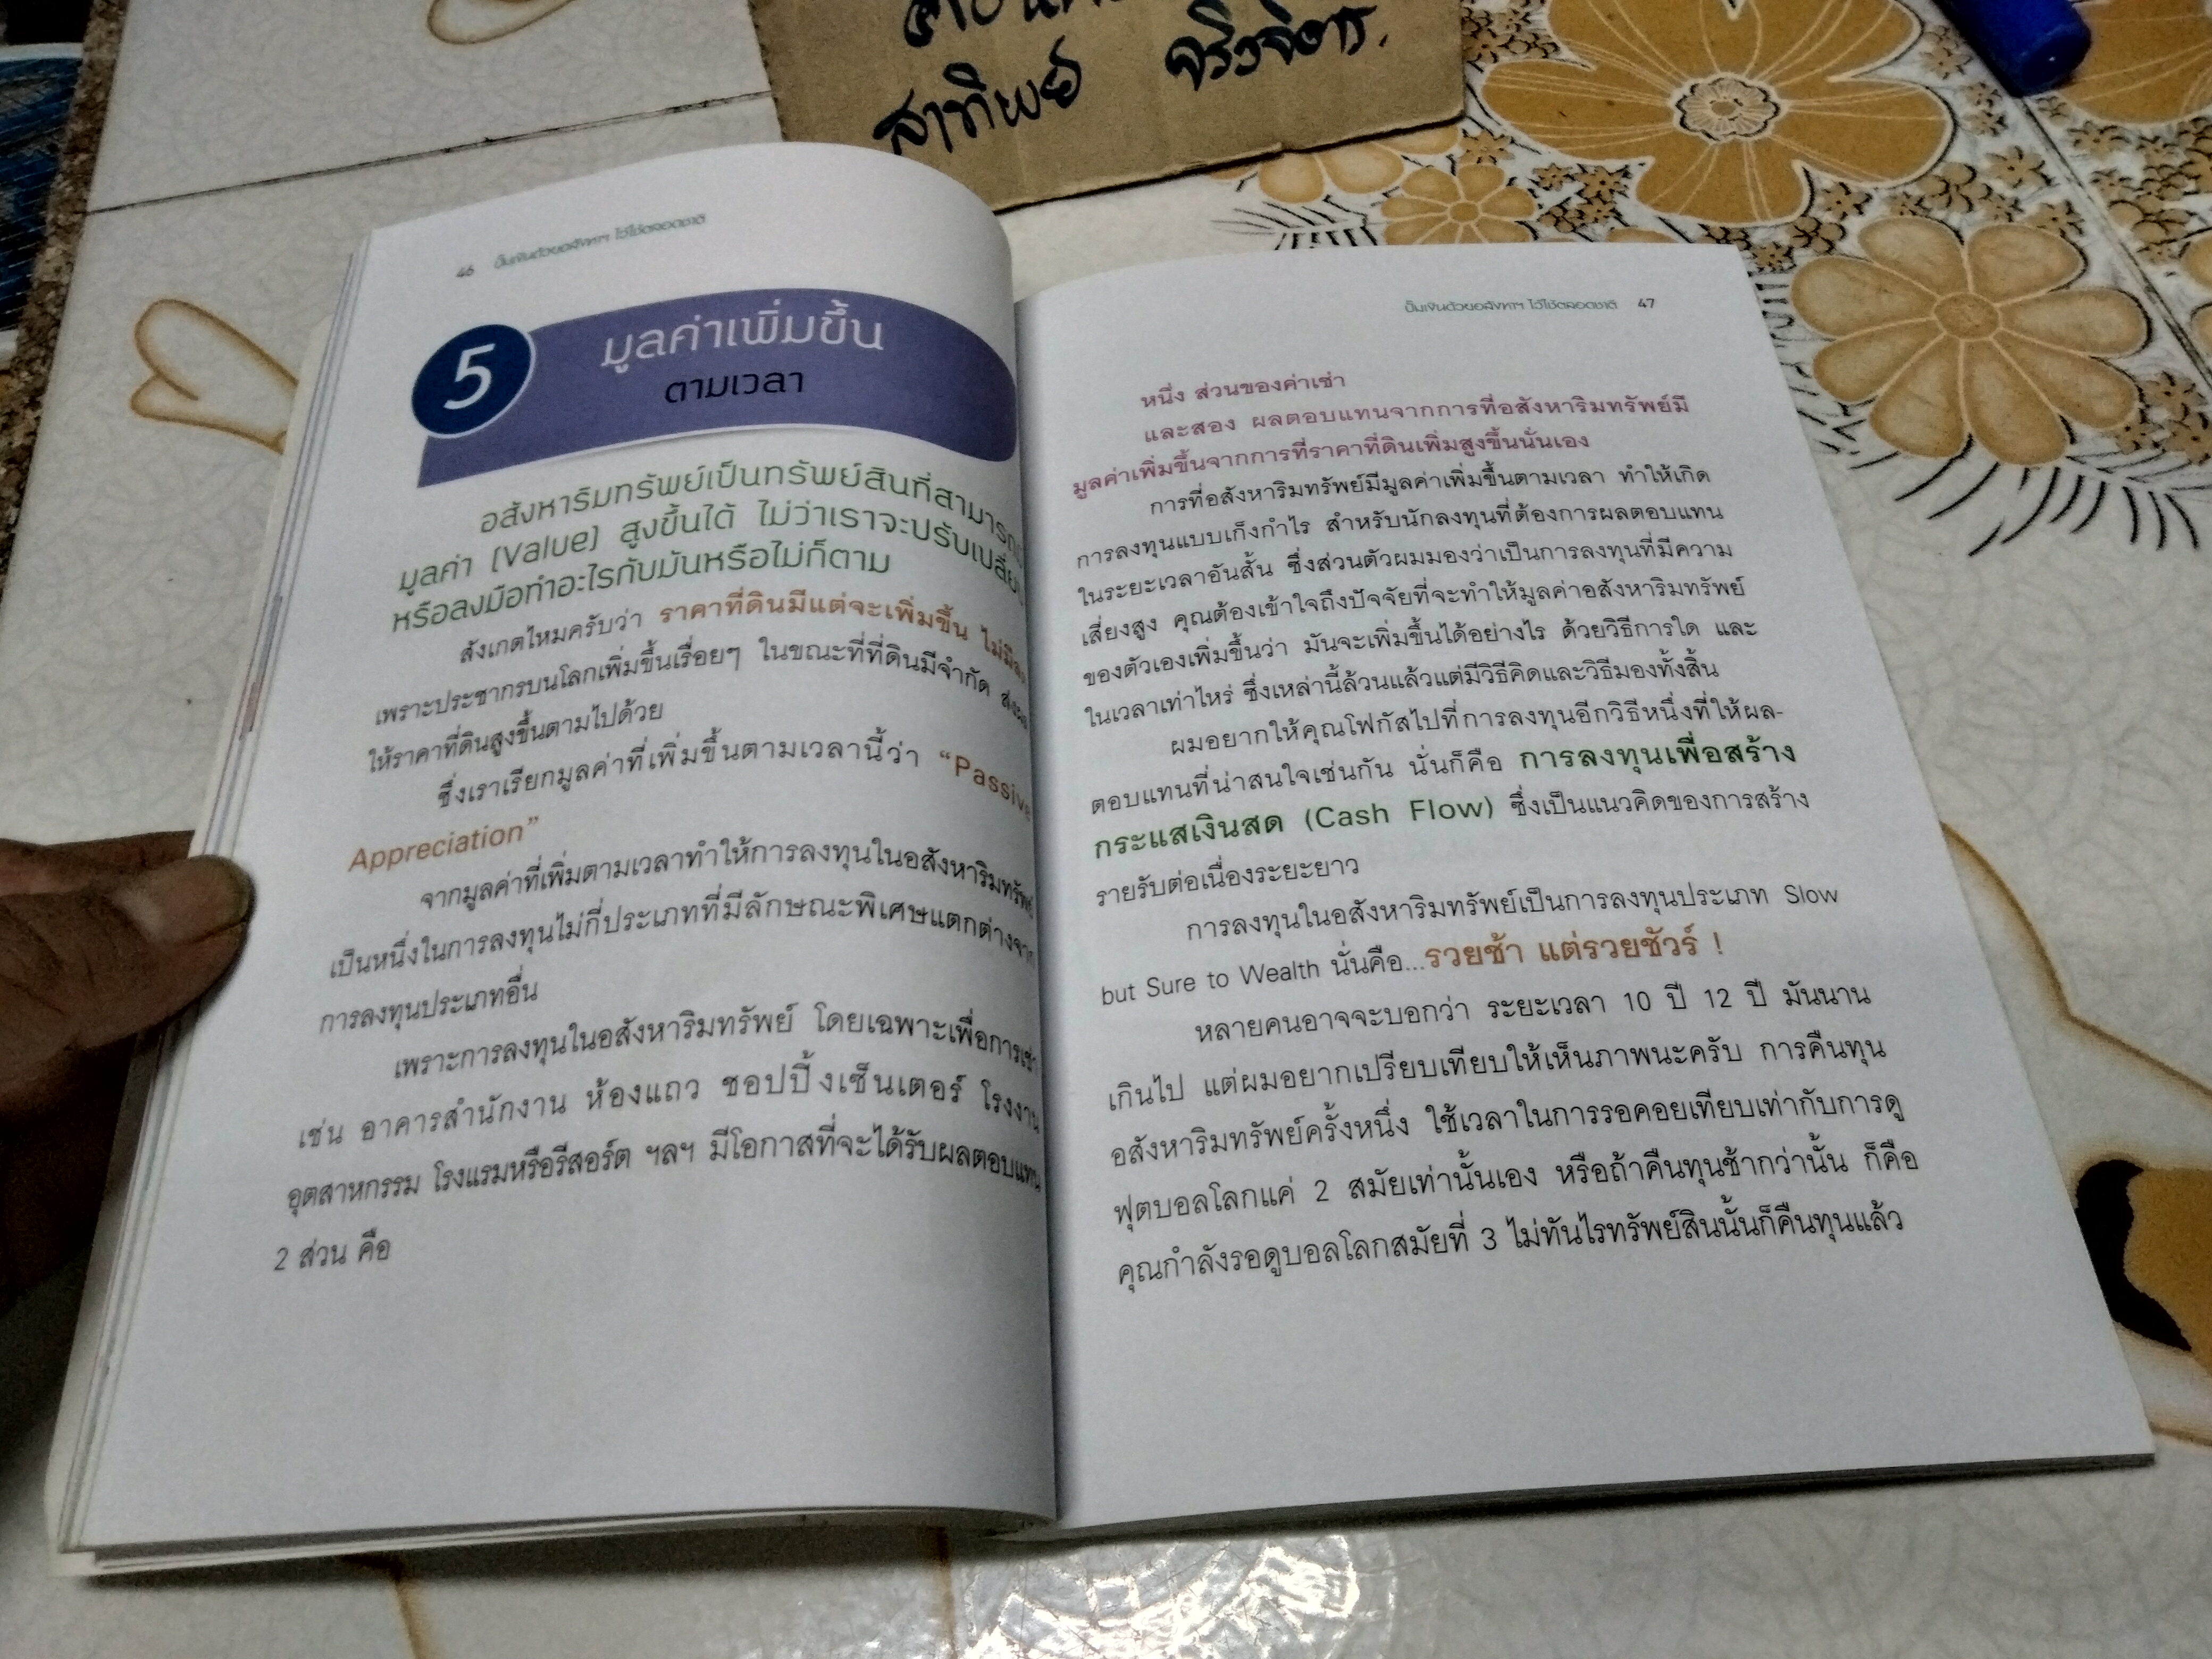 สาทิพย์ จริงจิตร.
46 ปั๊มเงินด้วยอสังหาฯ ไว้ใช้ตลอดชาติ
5
มูลค่าเพิ่มขึ้น
ตามเวลา
อสังหาริมทรัพย์เป็นทรัพย์สินที่สามารถ
มูลค่า (Value) สูงขึ้นได้ ไม่ว่าเราจะปรับเปลี่ยน
หรือลงมือทำอะไรกับมันหรือไม่ก็ตาม
สังเกตไหมครับว่า ราคาที่ดินมีแต่จะเพิ่มขึ้น ไม่มีลด
เพราะประชากรบนโลกเพิ่มขึ้นเรื่อยๆ ในขณะที่ที่ดินมีจำกัด ส่งผล
ให้ราคาที่ดินสูงขึ้นตามไปด้วย
ซึ่งเราเรียกมูลค่าที่เพิ่มขึ้นตามเวลานี้ว่า “Passive
Appreciation”
จากมูลค่าที่เพิ่มตามเวลาทำให้การลงทุนในอสังหาริมทรัพย์
เป็นหนึ่งในการลงทุนไม่กี่ประเภทที่มีลักษณะพิเศษแตกต่างจาก
การลงทุนประเภทอื่น
เพราะการลงทุนในอสังหาริมทรัพย์ โดยเฉพาะเพื่อการเช่า
เช่น อาคารสำนักงาน ห้องแถว ชอปปิ้งเซ็นเตอร์ โรงงาน
อุตสาหกรรม โรงแรมหรือรีสอร์ต ฯลฯ มีโอกาสที่จะได้รับผลตอบแทน
2 ส่วน คือ
ปั๊มเงินด้วยอสังหาฯ ไว้ใช้ตลอดชาติ 47
หนึ่ง ส่วนของค่าเช่า
และสอง ผลตอบแทนจากการที่อสังหาริมทรัพย์มี
มูลค่าเพิ่มขึ้นจากการที่ราคาที่ดินเพิ่มสูงขึ้นนั่นเอง
การที่อสังหาริมทรัพย์มีมูลค่าเพิ่มขึ้นตามเวลา ทำให้เกิด
การลงทุนแบบเก็งกำไร สำหรับนักลงทุนที่ต้องการผลตอบแทน
ในระยะเวลาอันสั้น ซึ่งส่วนตัวผมมองว่าเป็นการลงทุนที่มีความ
เสี่ยงสูง คุณต้องเข้าใจถึงปัจจัยที่จะทำให้มูลค่าอสังหาริมทรัพย์
ของตัวเองเพิ่มขึ้นว่า มันจะเพิ่มขึ้นได้อย่างไร ด้วยวิธีการใด และ
ในเวลาเท่าไหร่ ซึ่งเหล่านี้ล้วนแล้วแต่มีวิธีคิดและวิธีมองทั้งสิ้น
ผมอยากให้คุณโฟกัสไปที่การลงทุนอีกวิธีหนึ่งที่ให้ผล-
ตอบแทนที่น่าสนใจเช่นกัน นั่นก็คือ การลงทุนเพื่อสร้าง
กระแสเงินสด (Cash Flow) ซึ่งเป็นแนวคิดของการสร้าง
รายรับต่อเนื่องระยะยาว
การลงทุนในอสังหาริมทรัพย์เป็นการลงทุนประเภท Slow
but Sure to Wealth นั่นคือ...รวยช้า แต่รวยชัวร์ !
หลายคนอาจจะบอกว่า ระยะเวลา 10 ปี 12 ปี มันนาน
เกินไป แต่ผมอยากเปรียบเทียบให้เห็นภาพนะครับ การคืนทุน
อสังหาริมทรัพย์ครั้งหนึ่ง ใช้เวลาในการรอคอยเทียบเท่ากับการดู
ฟุตบอลโลกแค่ 2 สมัยเท่านั้นเอง หรือถ้าคืนทุนช้ากว่านั้น ก็คือ
คุณกำลังรอดูบอลโลกสมัยที่ 3 ไม่ทันไรทรัพย์สินนั้นก็คืนทุนแล้ว